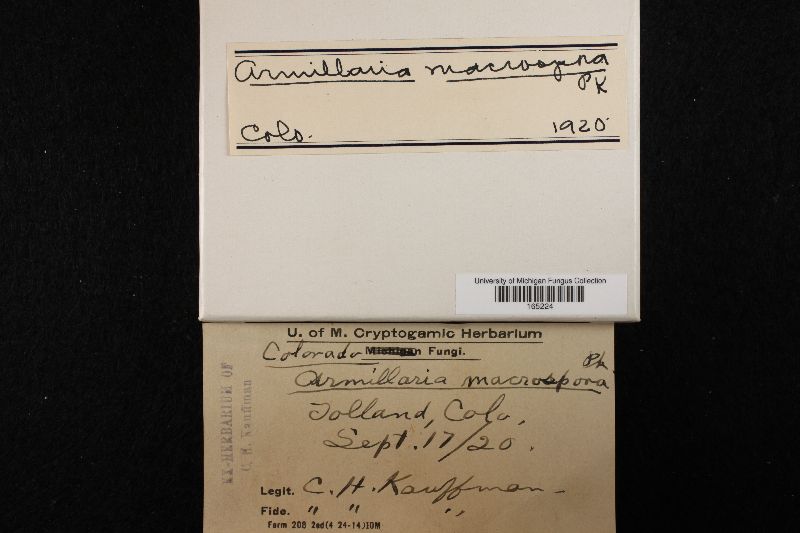 Armillaria macrospora
Pk
Colo. 1920
University of Michigan Fungus Collection
165224
U. of M. Cryptogamic Herbarium
Colorado Michigan Fungi.
Pk
Armillaria macrospora
Tolland, Colo,
Sept. 17/20.
Legit. C. H. Kauffman
Fide. " " "
Form 208 2ed(4 24-14)10M
EX-HERBARIUM OF
C. H. Kauffman